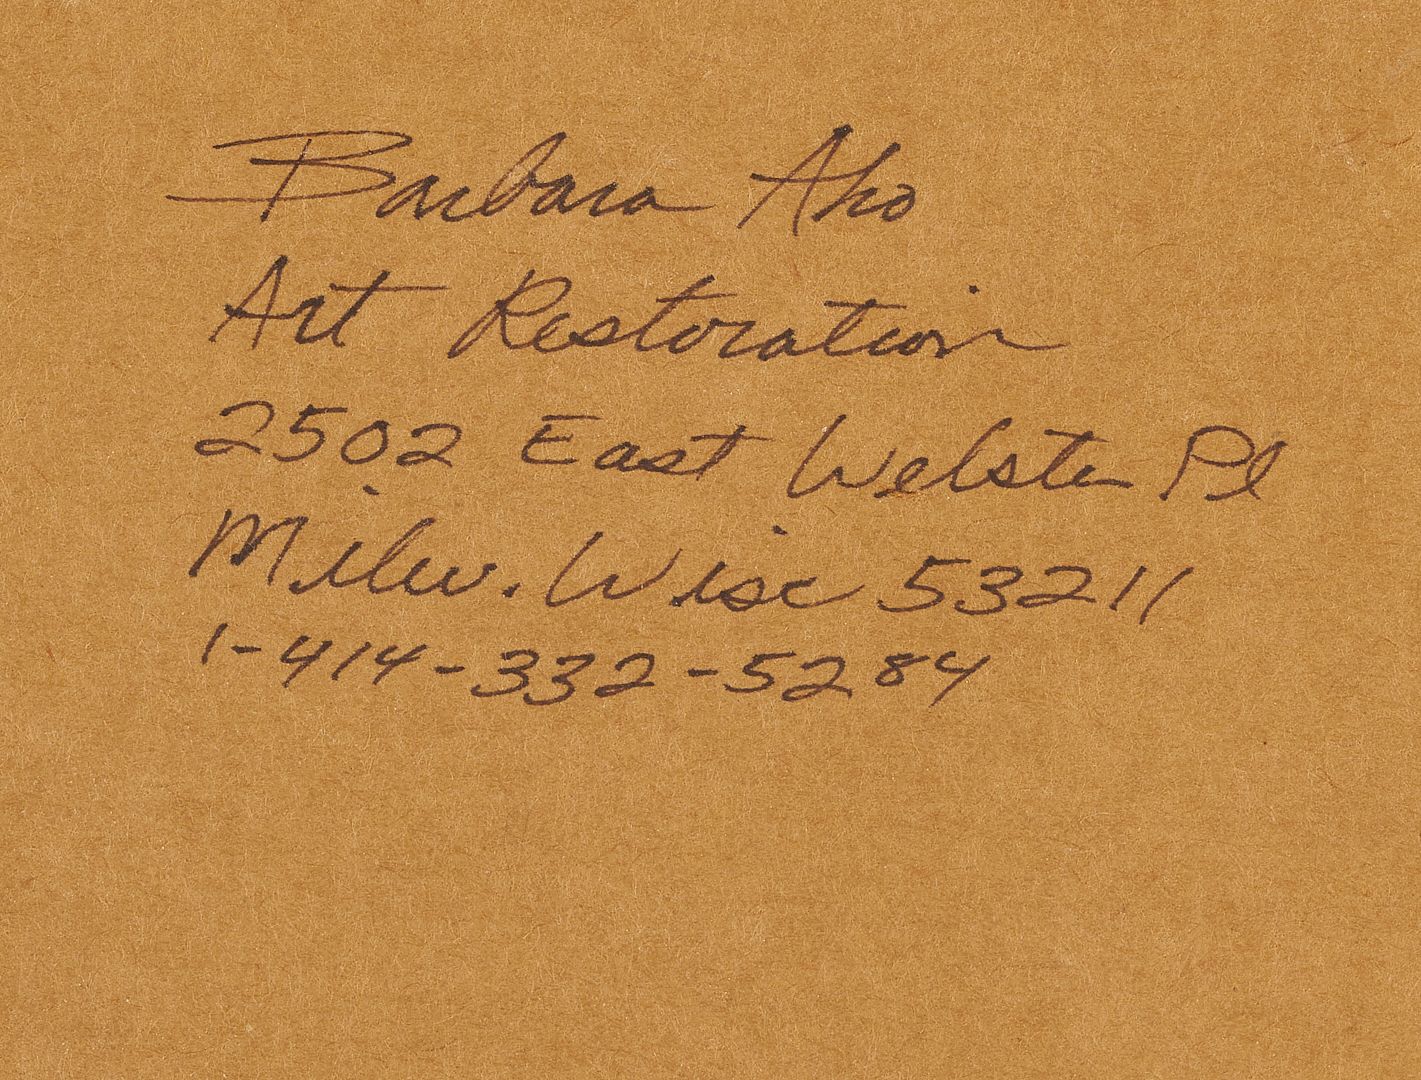 Barbara Aho
Art Restoration
2502 East Webster Pl
Milw. Wisc 53211
1-414-332-5284